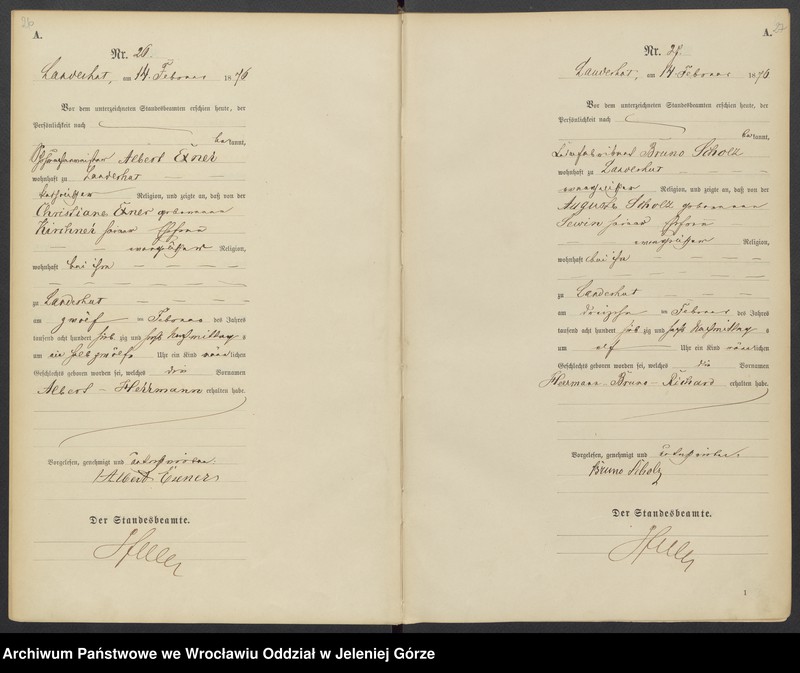 26
A.
Nr. 26.
Landeshut, am 14. Februar 1876
Vor dem unterzeichneten Standesbeamten erschien heute, der
Persönlichkeit nach
bekannt,
Albert Exner
wohnhaft zu Landeshut
katholischer Religion, und zeigte an, daß von der
Christiane Exner geborenen
Kirchner seiner Ehefrau
evangelischer Religion,
wohnhaft bei ihm
zu Landeshut
am zwölf ten Februar des Jahres
tausend acht hundert siebzig und sechs Nachmittags
um ein halb zwölf Uhr ein Kind männlichen
Geschlechts geboren worden sei, welches die Vornamen
Albert - Herrmann erhalten habe.
Vorgelesen, genehmigt und unterschrieben
Albert Exner
Der Standesbeamte.
27
A.
Nr. 27.
Landeshut, am 14. Februar 1876
Vor dem unterzeichneten Standesbeamten erschien heute, der
Persönlichkeit nach
bekannt,
Bruno Scholz
wohnhaft zu Landeshut
evangelischer Religion, und zeigte an, daß von der
Auguste Scholz geborenen
seiner Ehefrau
evangelischer Religion,
wohnhaft bei ihm
zu Landeshut
am dreizehn ten Februar des Jahres
tausend acht hundert siebzig und sechs Nachmittags
um elf Uhr ein Kind männlichen
Geschlechts geboren worden sei, welches die Vornamen
Herrmann - Bruno - Richard erhalten habe.
Vorgelesen, genehmigt und unterschrieben
Bruno Scholz
Der Standesbeamte.
1
Archiwum Państwowe we Wrocławiu Oddział w Jeleniej Górze